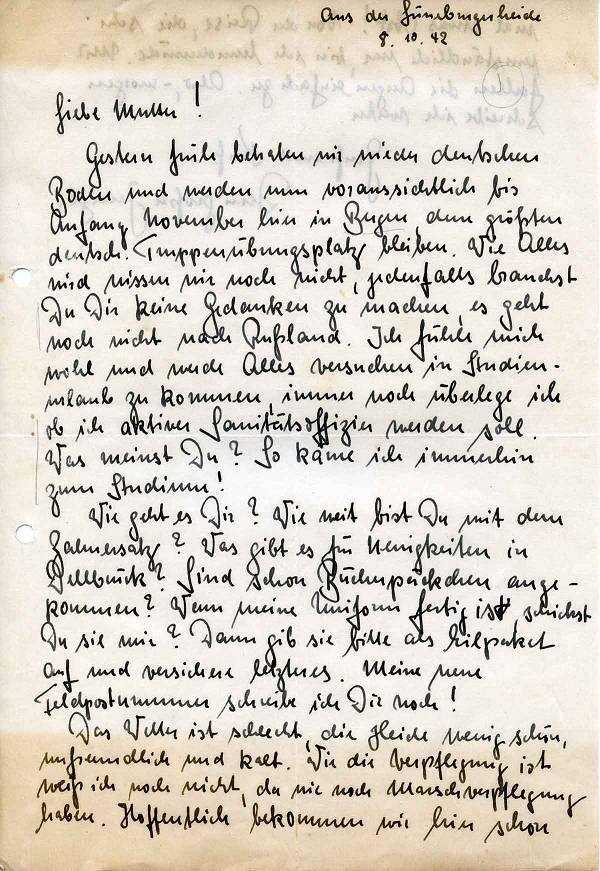 Aus der Lüneburgerheide
8. 10. 42
1
Liebe Mutter!
Gestern früh betraten wir wieder deutschen
Boden und werden nun voraussichtlich bis
Anfang November hier in Bergen, dem größten
deutsch. Truppenübungsplatz bleiben. Wie Alles
wird wissen wir noch nicht, jedenfalls brauchst
Du Dir keine Gedanken zu machen, es geht
noch nicht nach Rußland. Ich fühle mich
wohl und werde Alles versuchen in Studien-
urlaub zu kommen, immer noch überlege ich
ob ich aktiver Sanitätsoffizier werden soll.
Was meinst Du? So käme ich immerhin
zum Studium!
Wie geht es Dir? Wie weit bist Du mit dem
Zahnersatz? Was gibt es für Neuigkeiten in
Dellbrück? Sind schon Bücherpäckchen ange-
kommen? Wenn meine Uniform fertig ist, schickst
Du sie mir? Dann gib sie bitte als Eilpaket
auf und versichere letzteres. Meine neue
Feldpostnummer schreibe ich Dir noch!
Das Wetter ist schlecht, die Heide wenig schön,
unfreundlich und kalt. Wie die Verpflegung ist
weiß ich noch nicht, da wir noch Marschverpflegung
haben. Hoffentlich bekommen wir hier schon